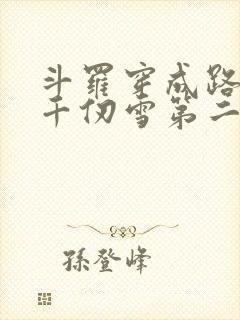 斗羅穿成路
千仞雪第二
孫登峰